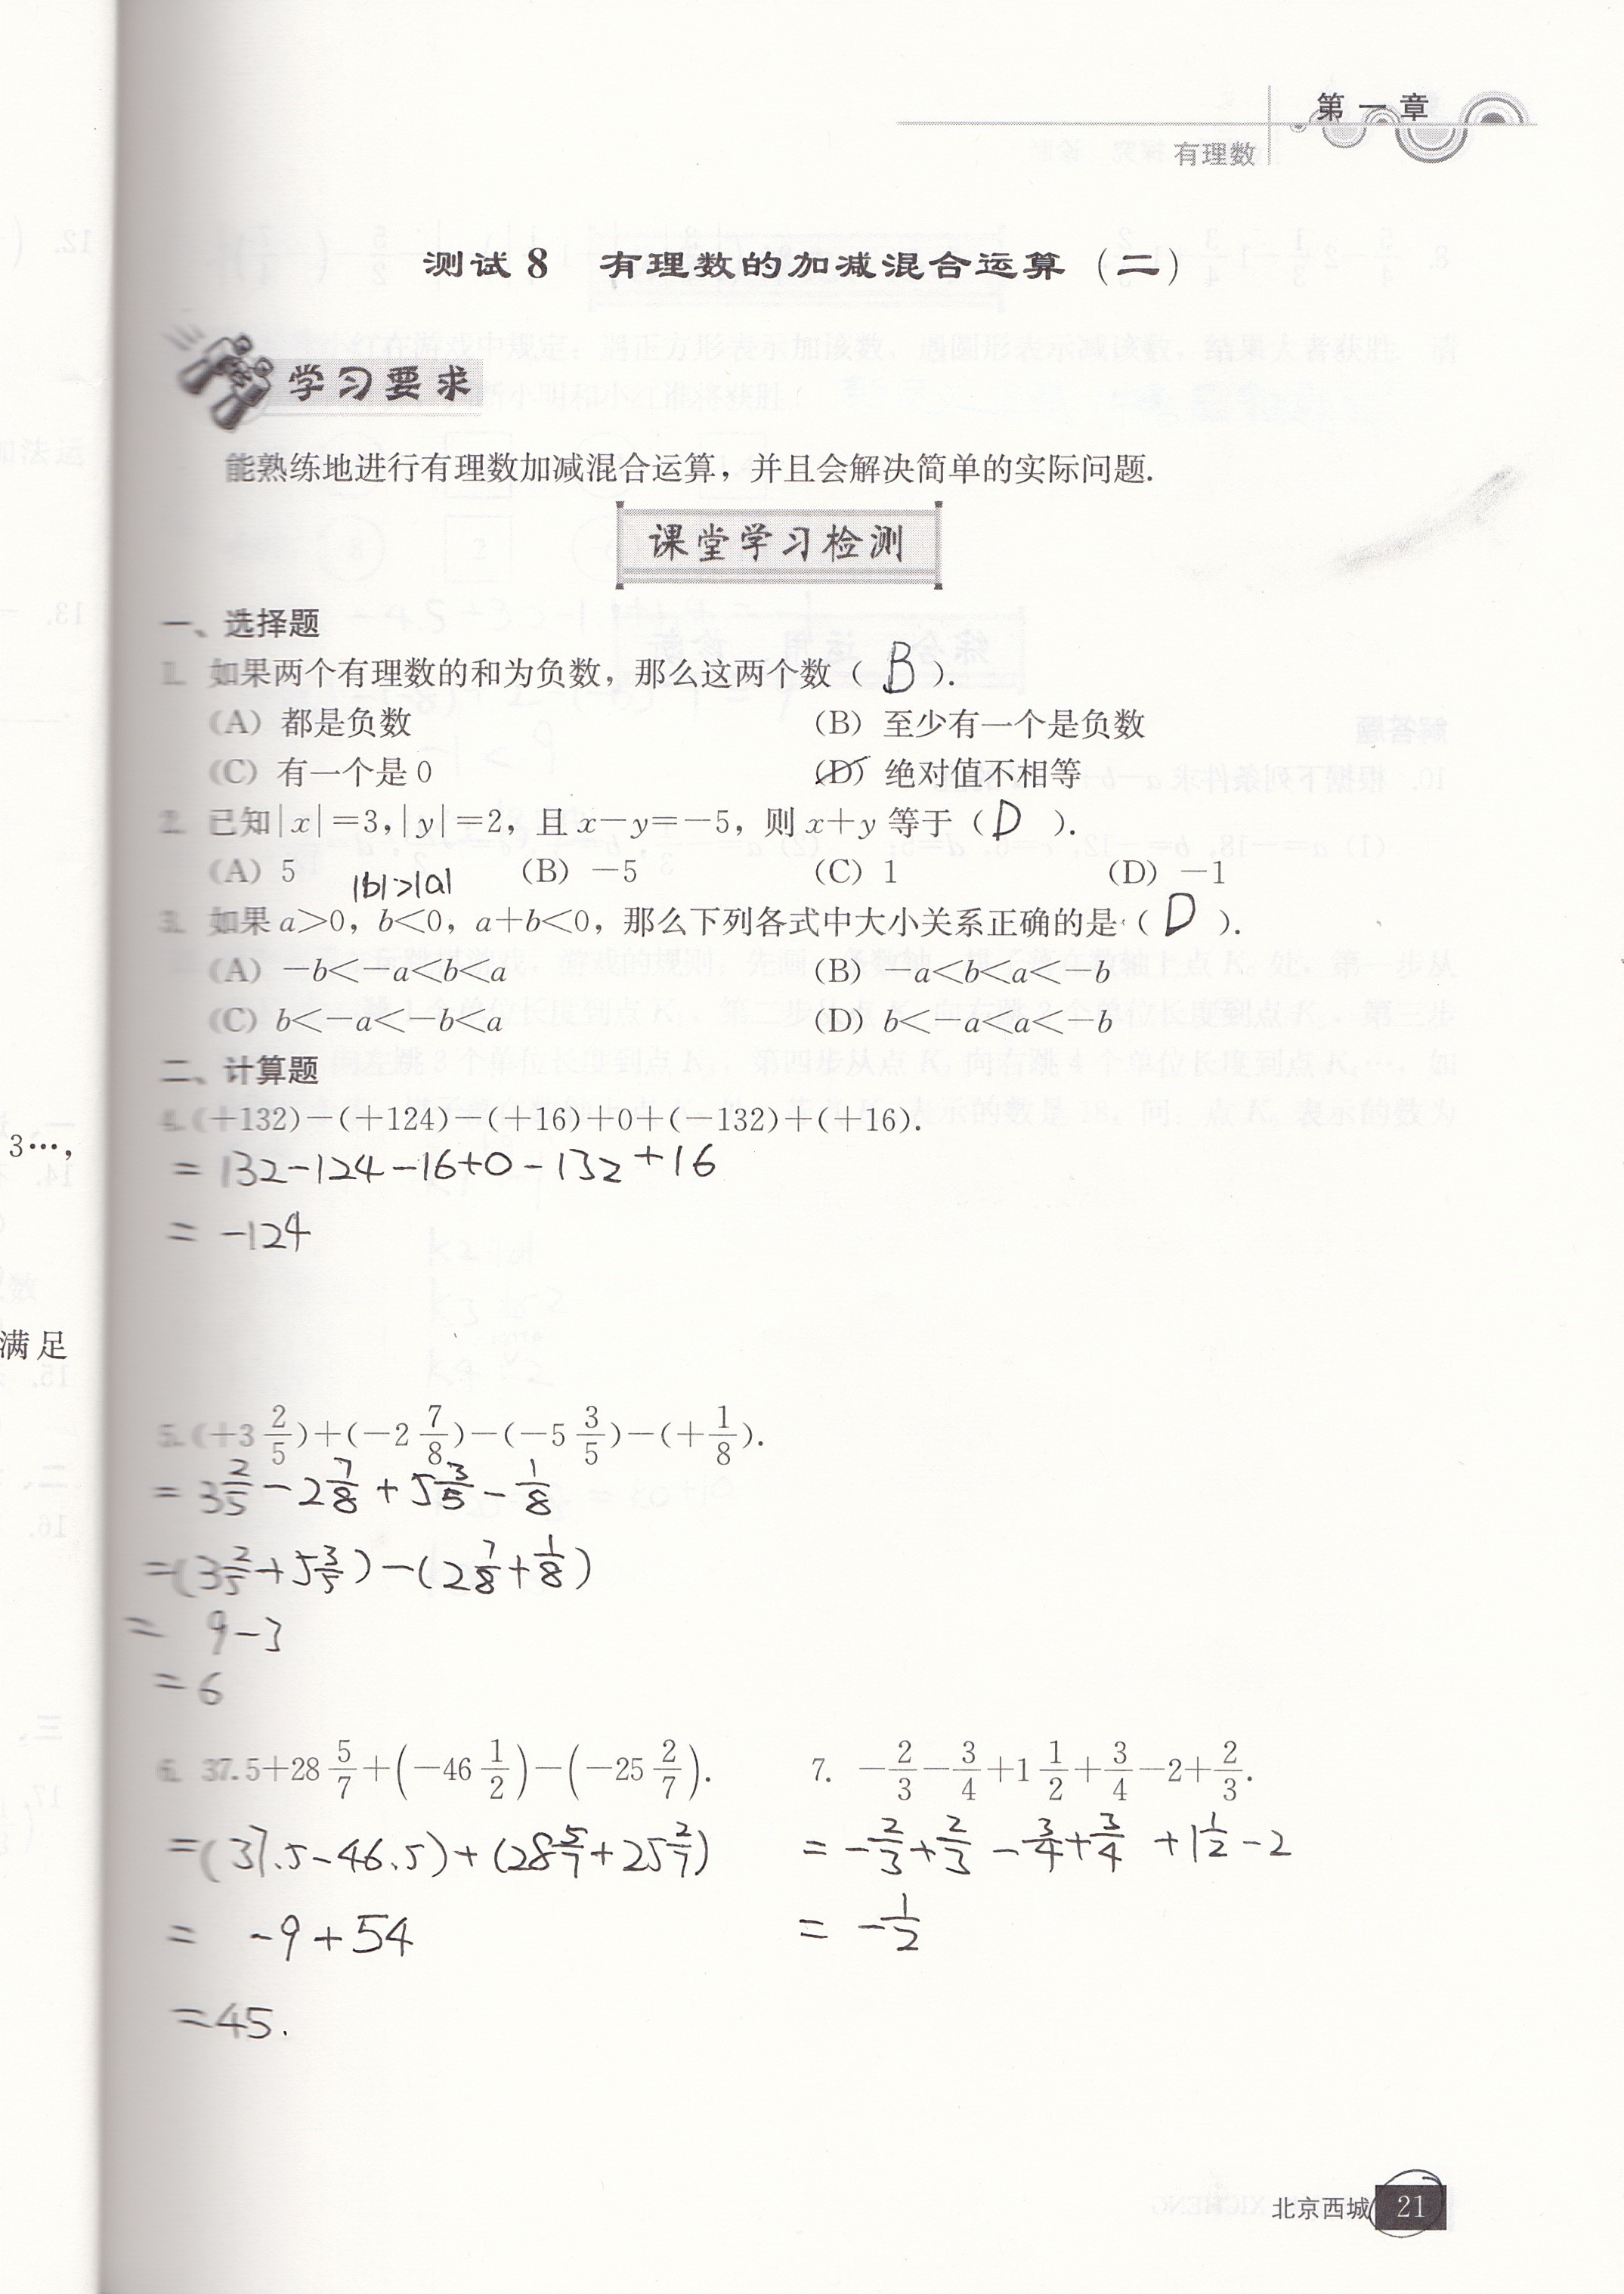 第一章
有理数
测试8 有理数的加减混合运算（二）
学习要求
能熟练地进行有理数加减混合运算，并且会解决简单的实际问题.
课堂学习检测
一、选择题
1. 如果两个有理数的和为负数，那么这两个数（ B ）.
（A）都是负数 （B）至少有一个是负数
（C）有一个是0 （D）绝对值不相等
2. 已知|x|=3,|y|=2，且x−y=−5，则x+y等于（ D ）.
（A）5 （B）−5 （C）1 （D）−1
|b|>|a|
3. 如果a>0，b<0，a+b<0，那么下列各式中大小关系正确的是（ D ）.
（A）−b<−a<b<a （B）−a<b<a<−b
（C）b<−a<−b<a （D）b<−a<a<−b
二、计算题
4.(+132)−(+124)−(+16)+0+(−132)+(+16).
3…,
= 132−124−16+0−132+16
= −124
满足
5.(+3 2/5)+(−2 7/8)−(−5 3/5)−(+1/8).
= 3 2/5 − 2 7/8 + 5 3/5 − 1/8
=(3 2/5+5 3/5)−(2 7/8+1/8)
= 9−3
= 6
6. 37.5+28 5/7+(−46 1/2)−(−25 2/7).
=(37.5−46.5)+(28 5/7+25 2/7)
= −9+54
=45.
7. −2/3−3/4+1 1/2+3/4−2+2/3.
= −2/3+2/3−3/4+3/4+1 1/2−2
= −1/2
北京西城 21